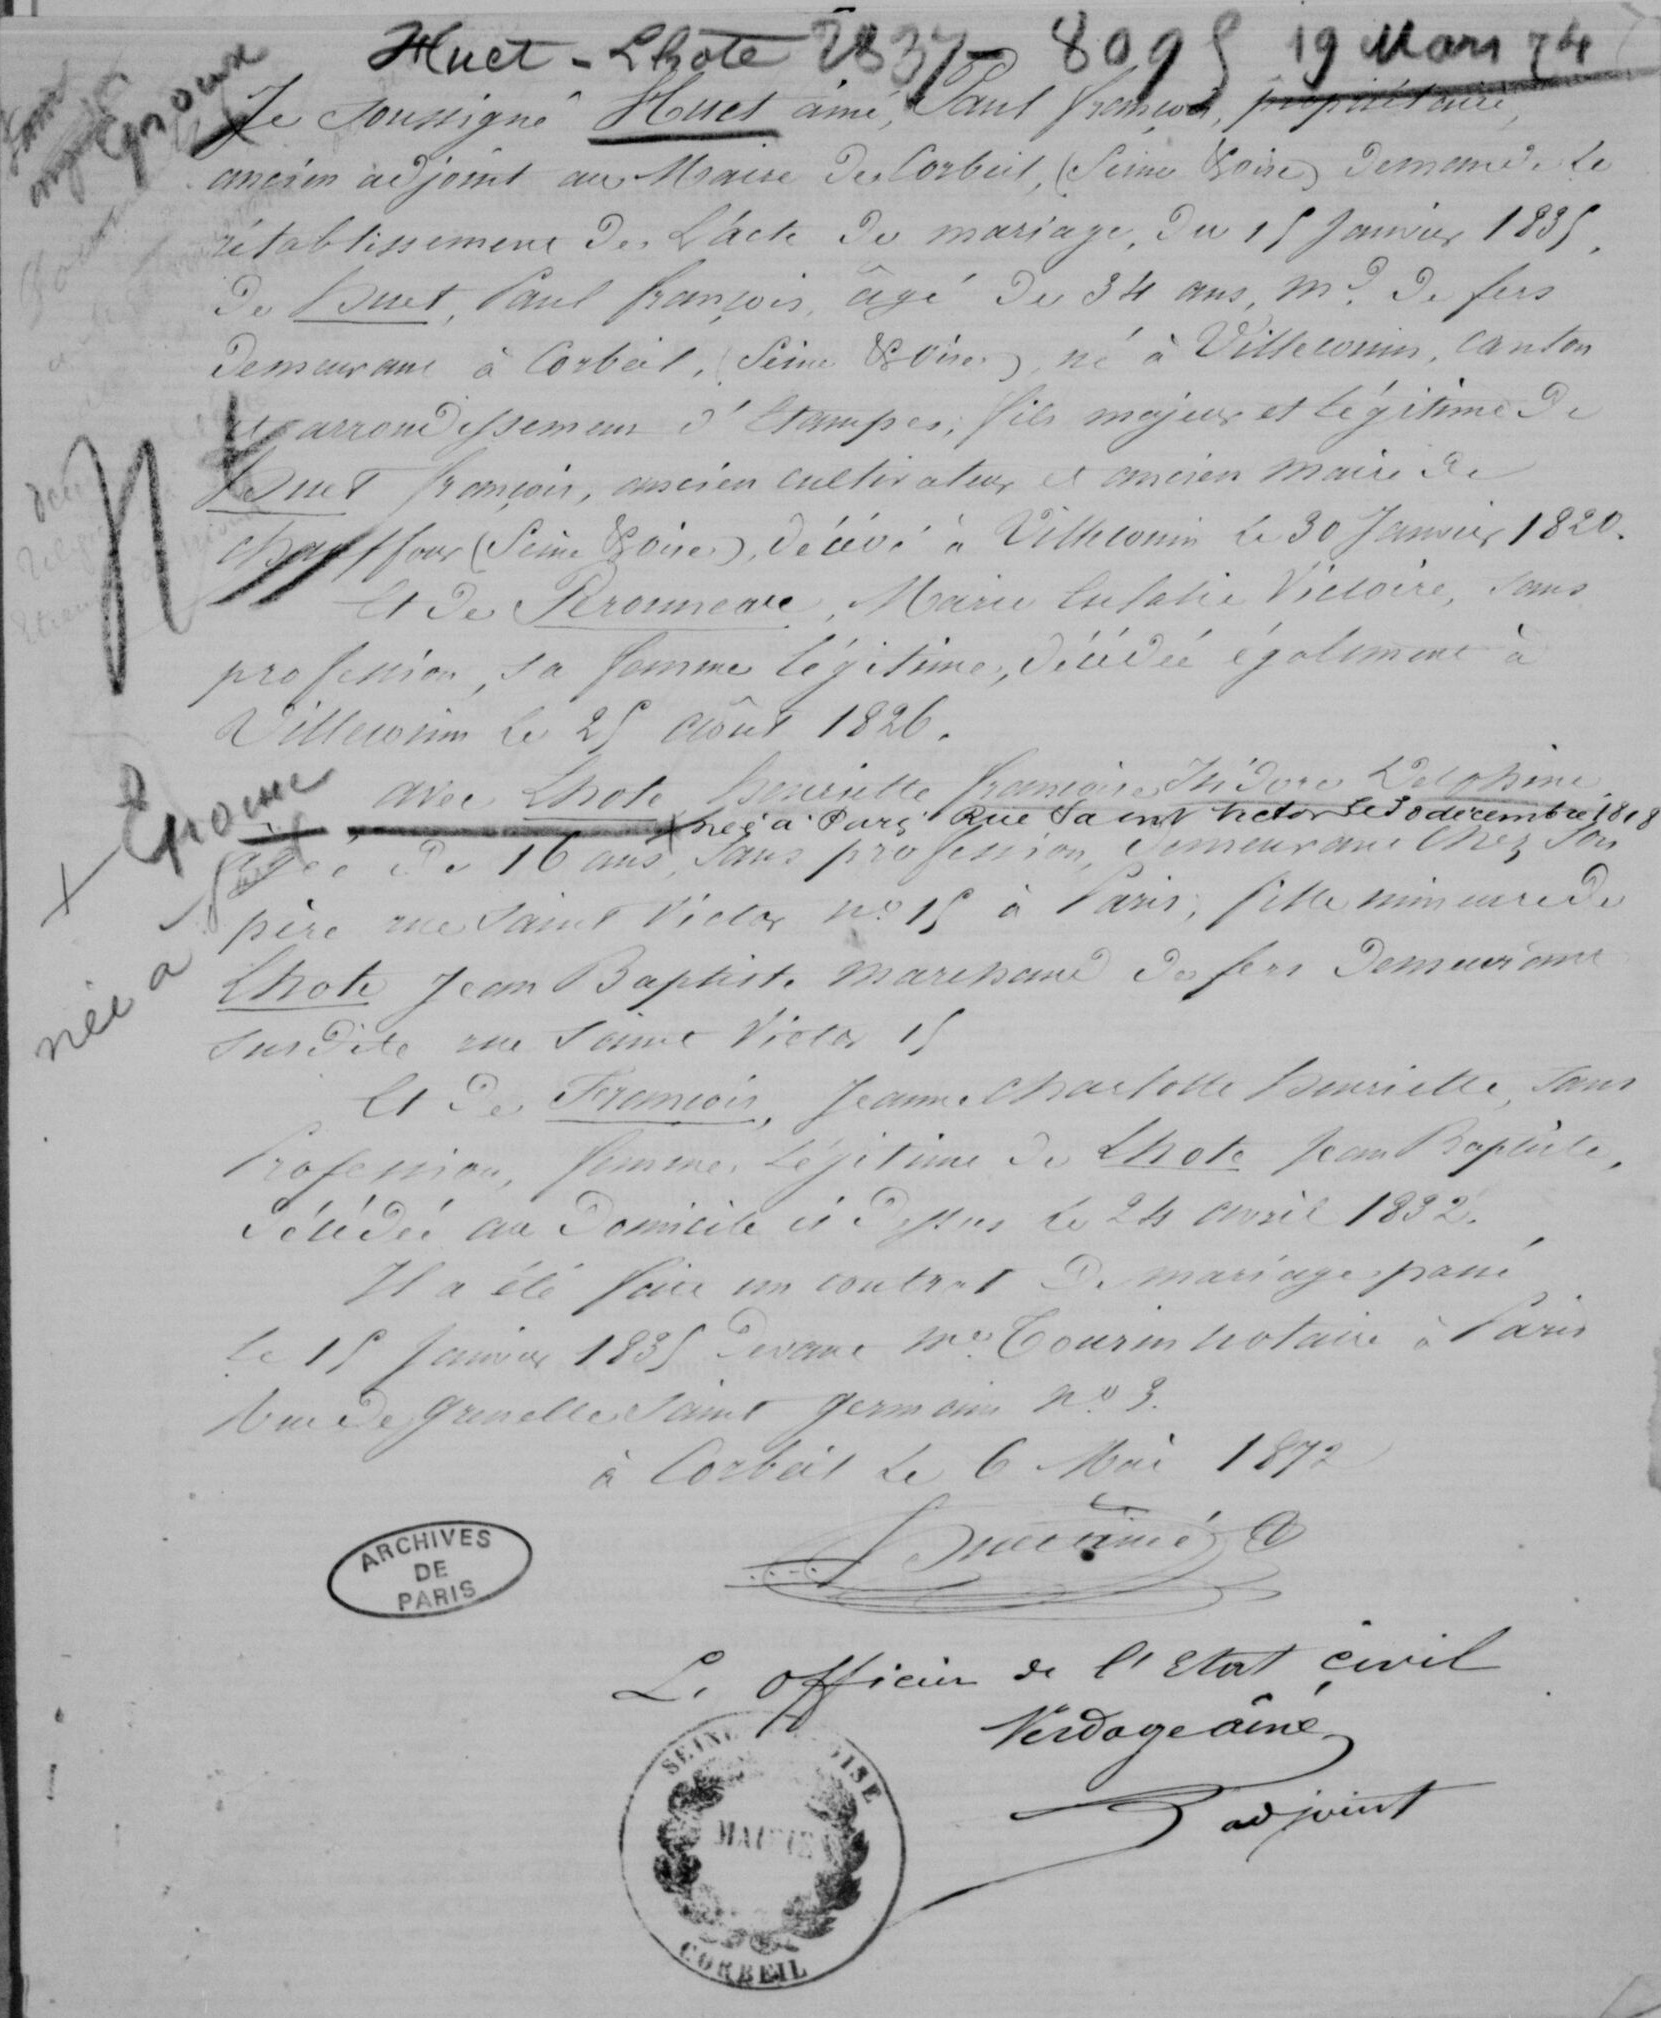 Huet - Lhote 2837 - 8095 19 Mars 74
Epoux
Je soussigné Huet aîné, Paul françois, propriétaire,
ancien adjoint au Maire de Corbeil, (Seine & Oise) demande le
rétablissement de L'acte de mariage, du 15 Janvier 1835,
de huet, Paul françois, âgé de 34 ans, md. de fers
demeurant à Corbeil, (Seine & Oise), né à Villeconin, canton
et arrondissement d'Etampes, fils majeur et légitime de
huet françois, ancien cultivateur et ancien maire de
chauffour (Seine & Oise), décédé à Villeconin le 30 Janvier 1820.
Et de Peronneau, Marie Eulalie Victoire, sans
profession, sa femme légitime, décédée également à
Villeconin le 25 août 1826.
+ Epouse
avec Lhote henriette françoise Isidore Delphine
+ née à Paris Rue Saint victor le 30 décembre 1818
âgée de 16 ans, sans profession, demeurant chez son
père rue Saint Victor no. 15 à Paris, fille mineure de
née à
Lhote Jean Baptiste marchand de fers demeurant
susdite rue Saint Victor 15
Et de François, Jeanne Charlotte henriette, sans
Profession, femme légitime de Lhote Jean Baptiste,
décédée au domicile ci dessus le 24 avril 1832.
Il a été fait un contrat de mariage passé
le 15 Janvier 1835 devant Me. Tourin notaire à Paris
Rue de Grenelle Saint germain no. 3.
à Corbeil le 6 Mai 1872
Huet aîné
ARCHIVES
DE
PARIS
L. officier de l'Etat civil
Verdage aîné
adjoint
SEINE OISE
MAIRIE
CORBEIL